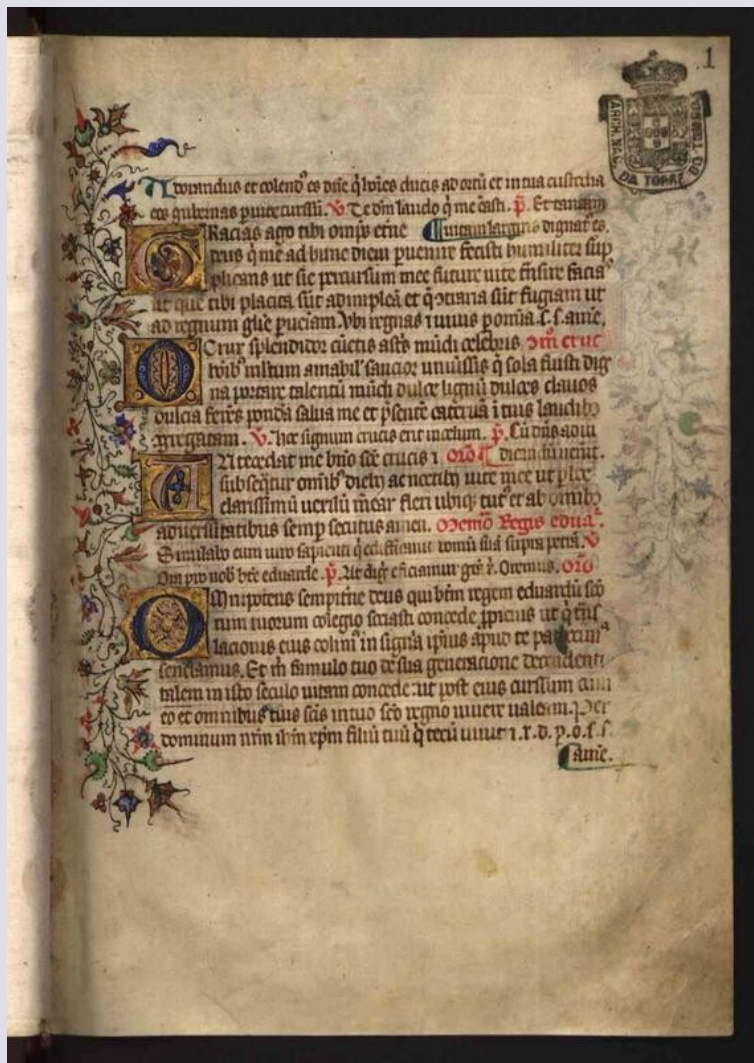 1
ARCH. NAC. DA TORRE DO TOMBO
Adorandus et colend⁹ es dñe q̃ hoĩes ducis ad ortũ et in tua custodia
eos gubernas ꝑ uite cursũ. ℣ Te dñm laudo q̃ me casti. ꝑ. Et tantam
GRacias ago tibi omĩps eterne uitam largiri dignat⁹ es.
deus q̃ me ad hunc diem ꝑuenire fecisti humilit̃ sup
plicans ut sic ꝑcursum mee future uite trãsire facia⁹
ut que tibi placita sũt adimpleã et q̃ ꝯtraria sũt fugiam ut
ad regnum glie ꝑueniam. Vbi regnas ⁊ uiuis ꝑ omĩa. s. s. amẽ.
O Crux splendidor cũctis astris mũdi celebris. Im̃ cruc
hoĩb⁹ mltum amabil' sanctior uniũsis q̃ sola fuisti dig
na portare talentũ mũdi dulce lignũ dulces clauos
dulcia ferẽs pondã salua me et ꝑsentẽ cateruã ĩ tuis laudib⁹
ꝯgregatam. ℣. hoc signum crucis erit in celum. ꝑ. Cũ dñs ad iu
ANtecedat me dñe scẽ crucis ⁊ Orõ. dicandũ uenit.
subseq̃tur omĩb⁹ dieb⁹ ac noctib⁹ uite mee ut ꝑ hoc
clarissimũ uexilũ merear fieri ubiq̃ tut⁹ et ab omnib⁹
aduersitatibus semp securus amen. Memõ Regis eduar.
Similabo eum uiro sapienti q̃ edifficauit domũ suã supra petrã. ℣
Ora pro nob̃ bte eduarde. ꝑ. Ut dig̃ efficiamur grẽ x̃. Oremus. Orõ
OMnipotens sempiterne deus qui bt̃m regem eduardũ scõ
rum tuorum colegio sociasti concede ꝑpicius ut q̃ trãs
lacionis eius colim⁹ insignia ipsius apud te patrocinia
senciamus. Et m̃ famulo tuo de sua generacione descendenti
talem in isto seculo uitam concede: ut post eius curssum cum
eo et omnibus tuis scĩs in tuo scõ regno uiuere ualeam. Per
dominum nrm ihm xpm filiũ tuũ q̃ tecũ uiuit ⁊. r. d. p. o. s. s.
amẽ.